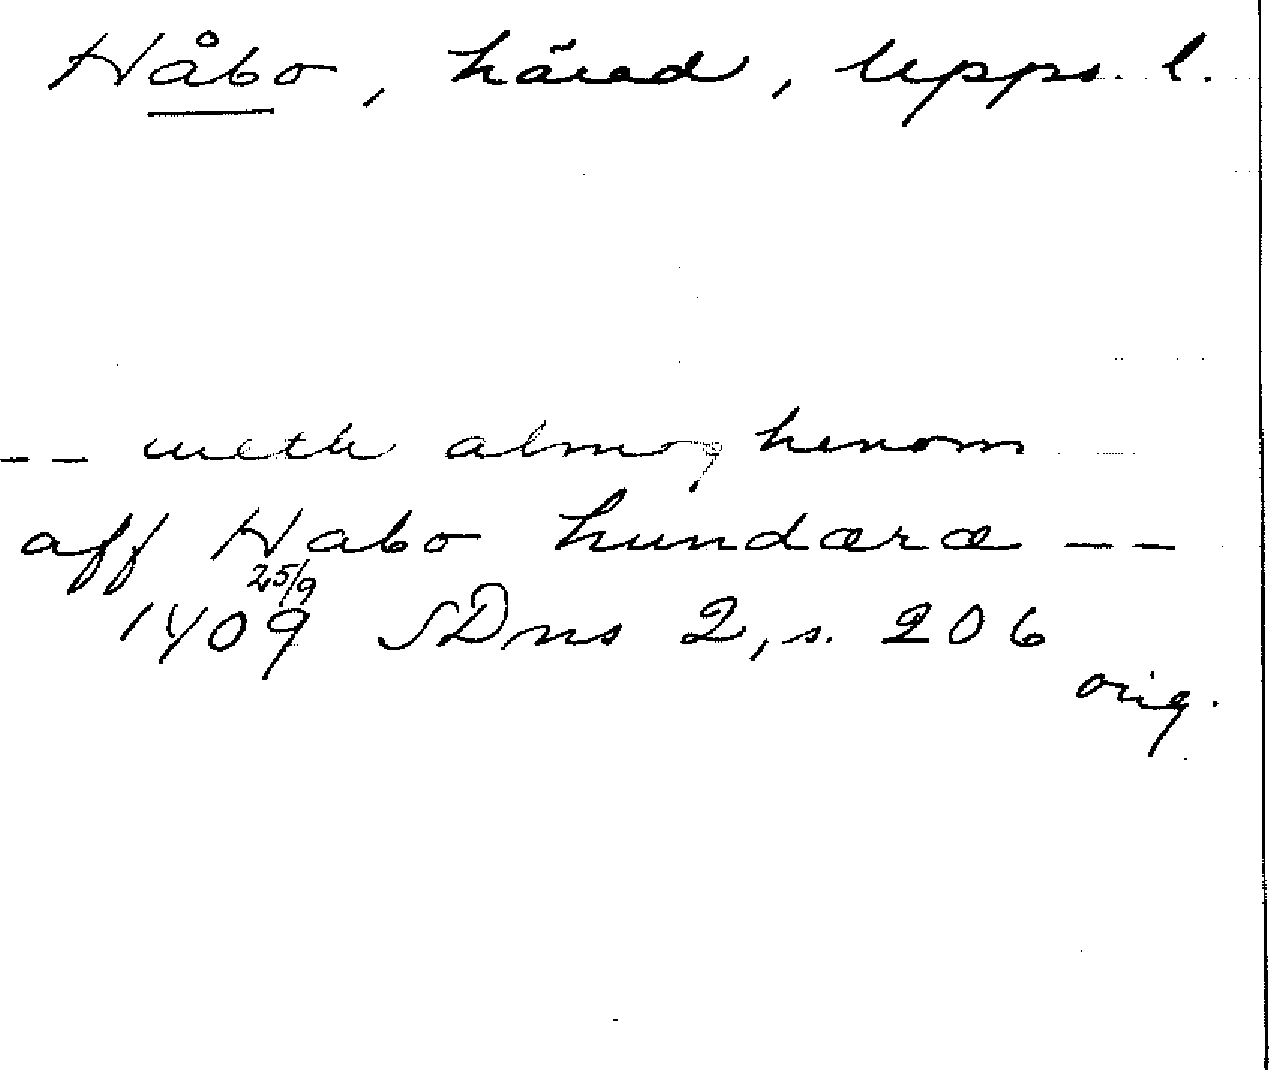 Håbo, härad, Upps. l.
-- meth almoghenom
aff Habo hundæræ --
25/9
1409 SDns 2, s. 206
orig.